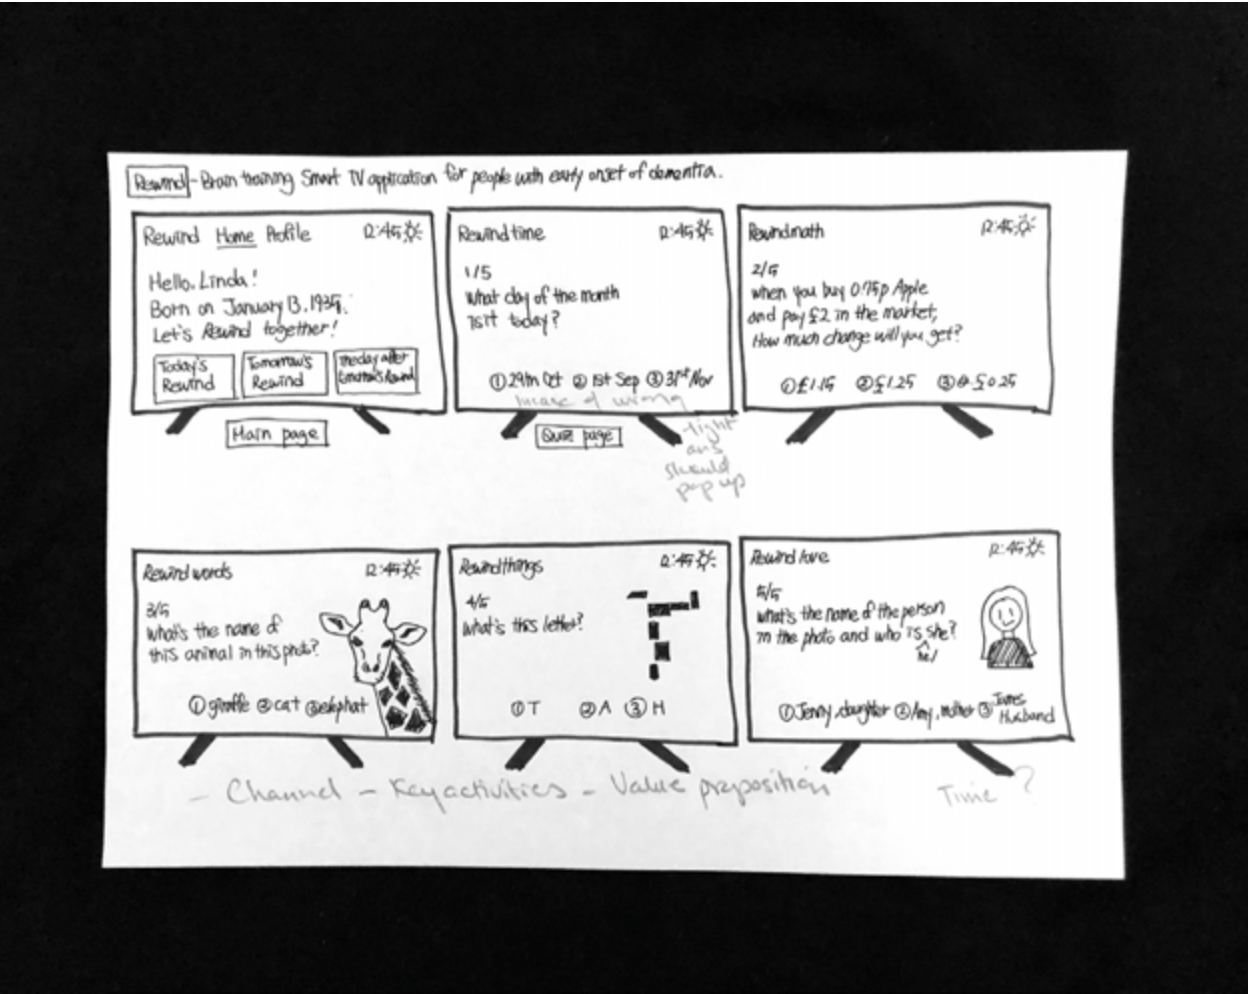 Rewind - Brain training Smart TV application for people with early onset of dementia.
Rewind Home Profile 12:45
Hello, Linda!
Born on January 13, 1935.
Let's Rewind together!
Today's
Rewind
Tomorrow's
Rewind
The day after
tomorrow's Rewind
Main page
Rewind time 12:45
1/5
What day of the month
is it today?
① 29th Oct ② 1st Sep ③ 31st Nov
Incase of wrong
right
ans
should
pop up
Quiz page
Rewind math 12:45
2/5
when you buy 0.75p Apple
and pay £2 in the market,
How much change will you get?
① £1.15 ② £1.25 ③ £0.25
Rewind words 12:45
3/5
What's the name of
this animal in this photo?
① giraffe ② cat ③ elephat
Rewind things 12:45
4/5
What's this letter?
① T ② A ③ H
Rewind love 12:45
5/5
what's the name of the person
in the photo and who is she?
he/
① Jenny, daughter ② Amy, mother ③ James
Husband
- Channel - Key activities - Value preposition Time?